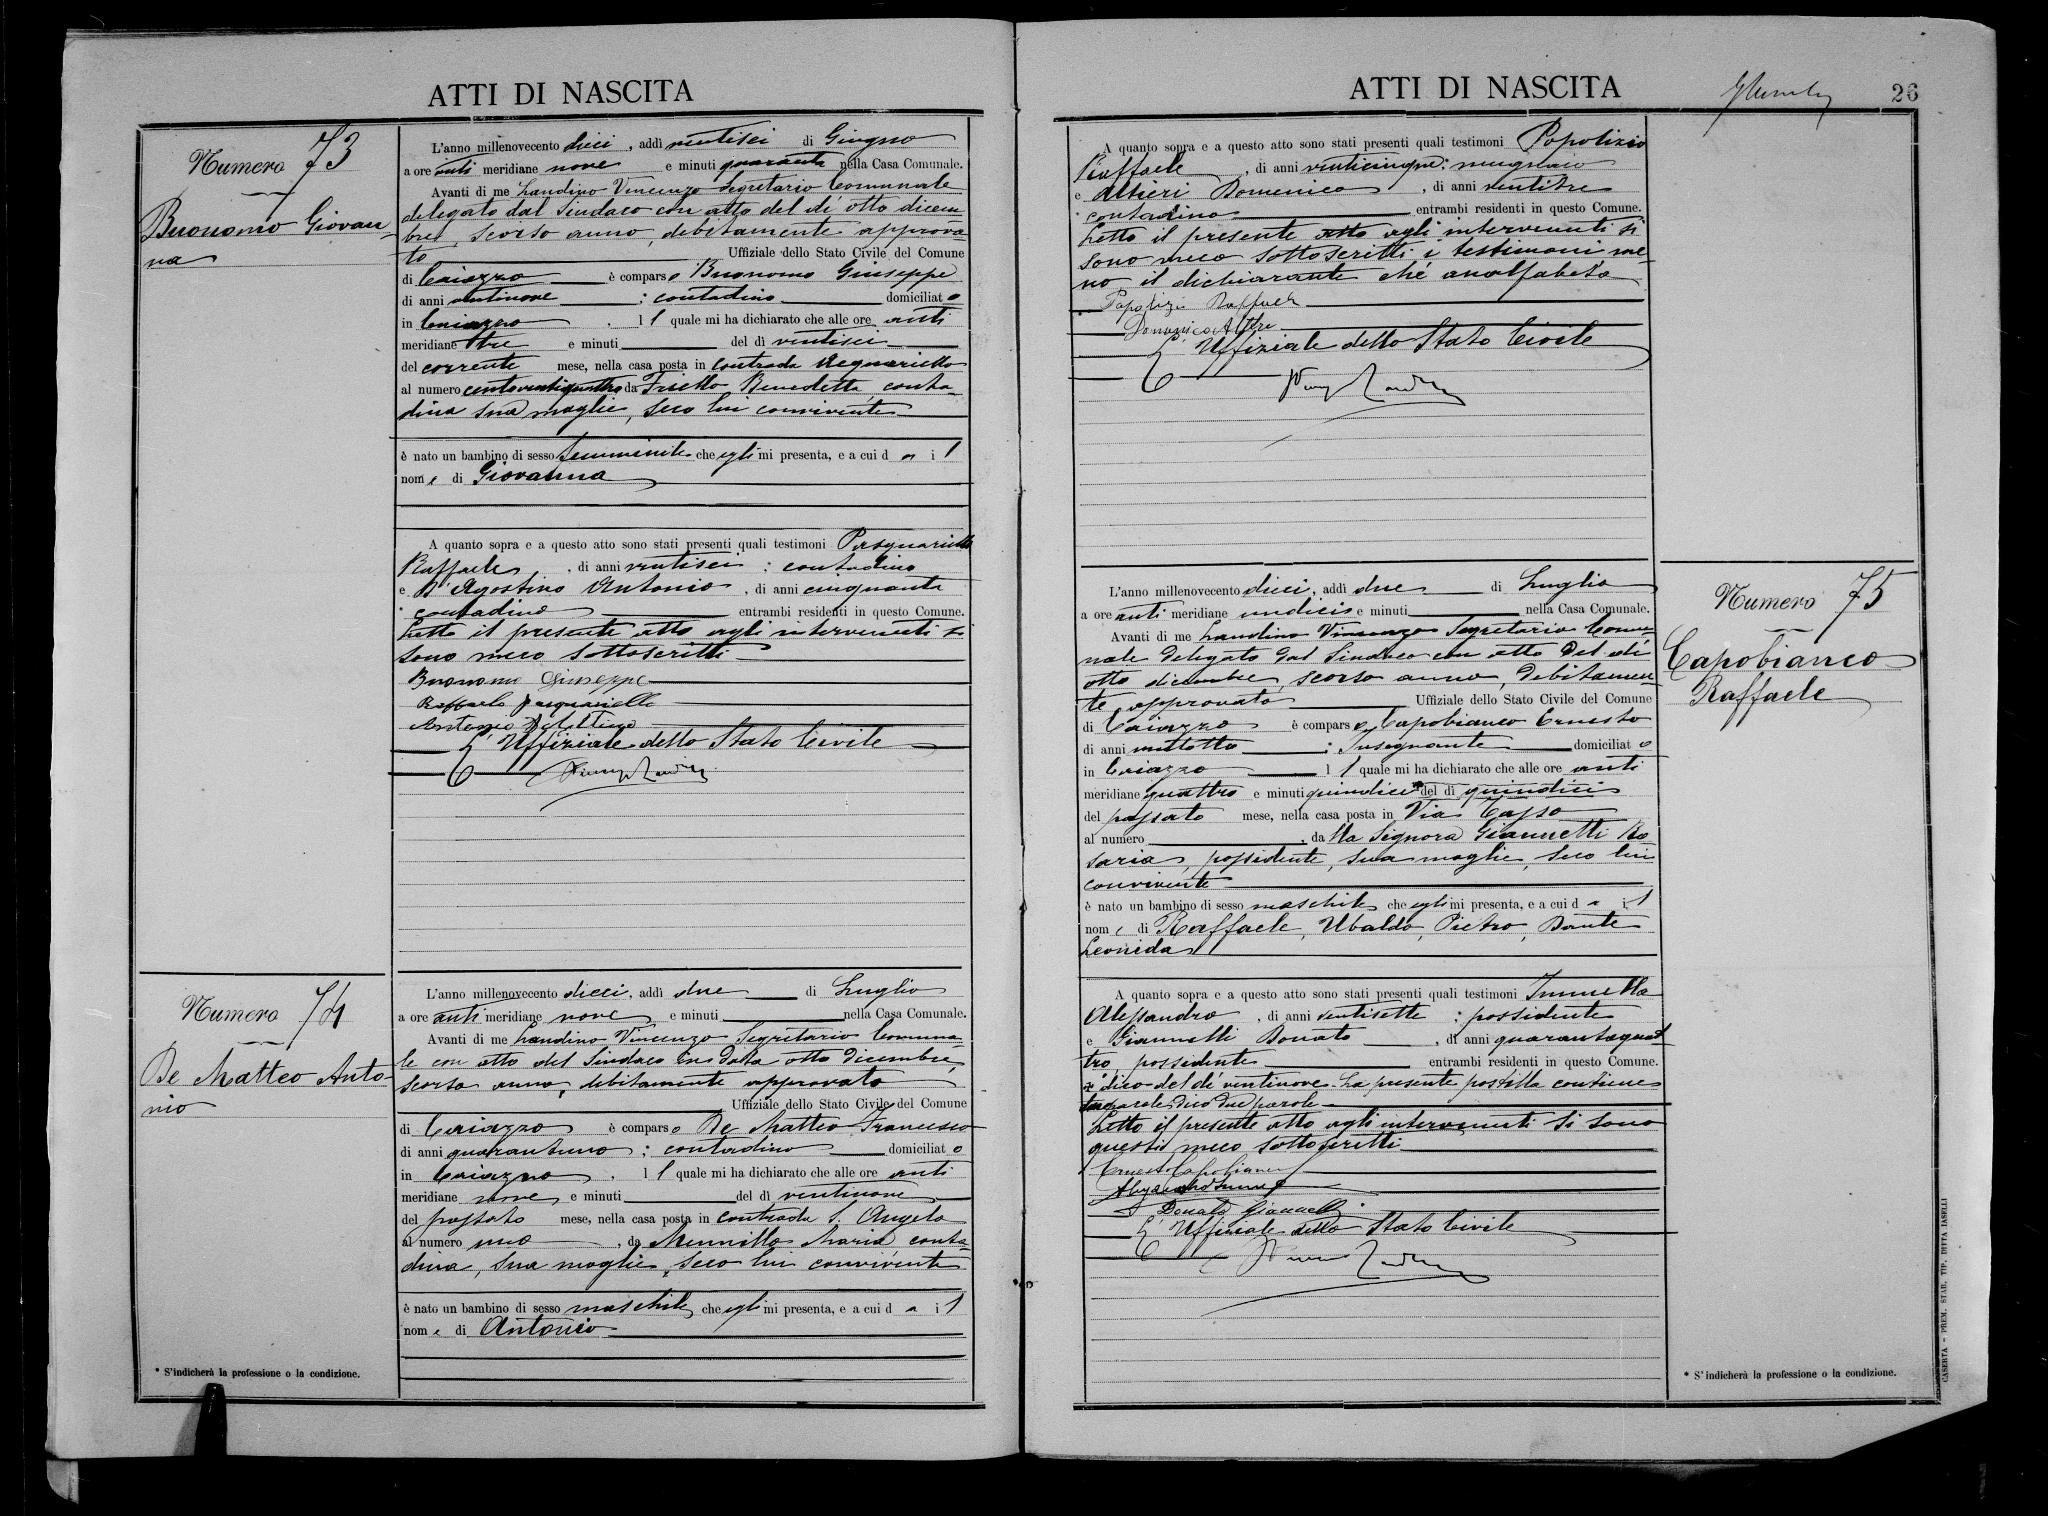 ATTI DI NASCITA
Numero 73
Buonomo Giovan-
na
L'anno millenovecento dieci, addì ventisei di Giugno
a ore anti meridiane nove e minuti quaranta nella Casa Comunale.
Avanti di me Landino Vincenzo Segretario Comunale
delegato dal Sindaco con atto del dì otto dicem-
bre, scorso anno, debitamente approva-
to Uffiziale dello Stato Civile del Comune
di Caiazzo è comparso Buonomo Giuseppe
di anni ventinove ; contadino domiciliato
in Caiazzo . il quale mi ha dichiarato che alle ore anti
meridiane tre e minuti del dì ventisei
del corrente mese, nella casa posta in contrada
al numero centoventiquattro da Benedetta conta-
dina sua moglie, seco lui convivente
è nato un bambino di sesso femminile che egli mi presenta, e a cui da il
nome di Giovanna
A quanto sopra e a questo atto sono stati presenti quali testimoni Pasquariello
Raffaele , di anni ventisei ; contadino
e D'Agostino Antonio , di anni cinquanta
* contadino entrambi residenti in questo Comune.
Letto il presente atto agli intervenuti si
sono meco sottoscritti
Buonomo Giuseppe
Raffaele Pasquariello
Antonio
L'Uffiziale dello Stato Civile
Numero 74
De Matteo Anto-
nio
L'anno millenovecento dieci, addì due di Luglio
a ore anti meridiane nove e minuti nella Casa Comunale.
Avanti di me Landino Vincenzo Segretario Comuna-
le con atto del Sindaco in data otto dicembre
scorso anno, debitamente approvato
Uffiziale dello Stato Civile del Comune
di Caiazzo è comparso De Matteo Francesco
di anni quarantuno ; contadino domiciliato
in Caiazzo . il quale mi ha dichiarato che alle ore anti
meridiane nove e minuti del dì ventinove
del passato mese, nella casa posta in contrada S. Angelo
al numero uno , da Mennillo Maria conta-
dina, sua moglie, seco lui convivente
è nato un bambino di sesso maschile che egli mi presenta, e a cui da il
nome di Antonio
* S'indicherà la professione o la condizione.
ATTI DI NASCITA
26
A quanto sopra e a questo atto sono stati presenti quali testimoni Papolizio
Raffaele , di anni venticinque ; mugnaio
e Altieri Domenico , di anni ventitre
* contadino entrambi residenti in questo Comune.
Letto il presente atto agli intervenuti si
sono meco sottoscritti i testimoni me-
no il dichiarante ché analfabeta
Papolizio Raffaele
Domenico Altieri
L'Uffiziale dello Stato Civile
Numero 75
Capobianco
Raffaele
L'anno millenovecento dieci, addì due di Luglio
a ore anti meridiane undici e minuti nella Casa Comunale.
Avanti di me Landino Vincenzo Segretario Comu-
nale delegato dal Sindaco con atto del dì
otto dicembre, scorso anno, debitamen-
te approvato Uffiziale dello Stato Civile del Comune
di Caiazzo è comparso Capobianco Ernesto
di anni ventotto ; Insegnante domiciliato
in Caiazzo il quale mi ha dichiarato che alle ore anti
meridiane quattro e minuti quindici del dì quindici
del passato mese, nella casa posta in Via Tasso
al numero , dalla Signora Giannelli Ro-
saria, possidente, sua moglie, seco lui
convivente
è nato un bambino di sesso maschile che egli mi presenta, e a cui da il
nome di Raffaele, Ubaldo, Pietro, Dante
Leonida
A quanto sopra e a questo atto sono stati presenti quali testimoni
Alessandro , di anni ventisette ; possidente
e Giannelli Donato , di anni quarantaquat
tro, possidente entrambi residenti in questo Comune.
dico del dì ventinove. La presente postilla contiene
parole dico due parole
Letto il presente atto agli intervenuti si sono
questi meco sottoscritti
Ernesto Capobianco
Donato Giannelli
L'Uffiziale dello Stato Civile
* S'indicherà la professione o la condizione.
CASERTA – PREM. STAB. TIP. DITTA IASELLI